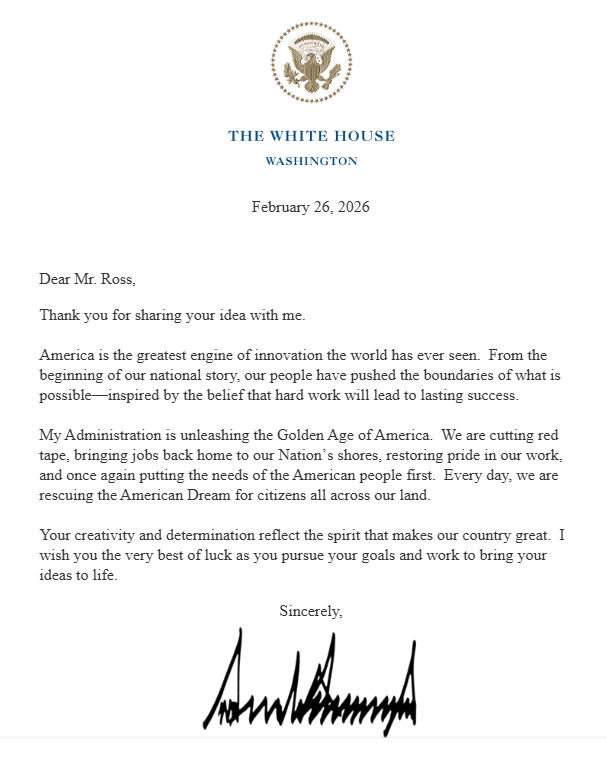 THE WHITE HOUSE
WASHINGTON
February 26, 2026
Dear Mr. Ross,
Thank you for sharing your idea with me.
America is the greatest engine of innovation the world has ever seen.  From the
beginning of our national story, our people have pushed the boundaries of what is
possible—inspired by the belief that hard work will lead to lasting success.
My Administration is unleashing the Golden Age of America.  We are cutting red
tape, bringing jobs back home to our Nation’s shores, restoring pride in our work,
and once again putting the needs of the American people first.  Every day, we are
rescuing the American Dream for citizens all across our land.
Your creativity and determination reflect the spirit that makes our country great.  I
wish you the very best of luck as you pursue your goals and work to bring your
ideas to life.
Sincerely,